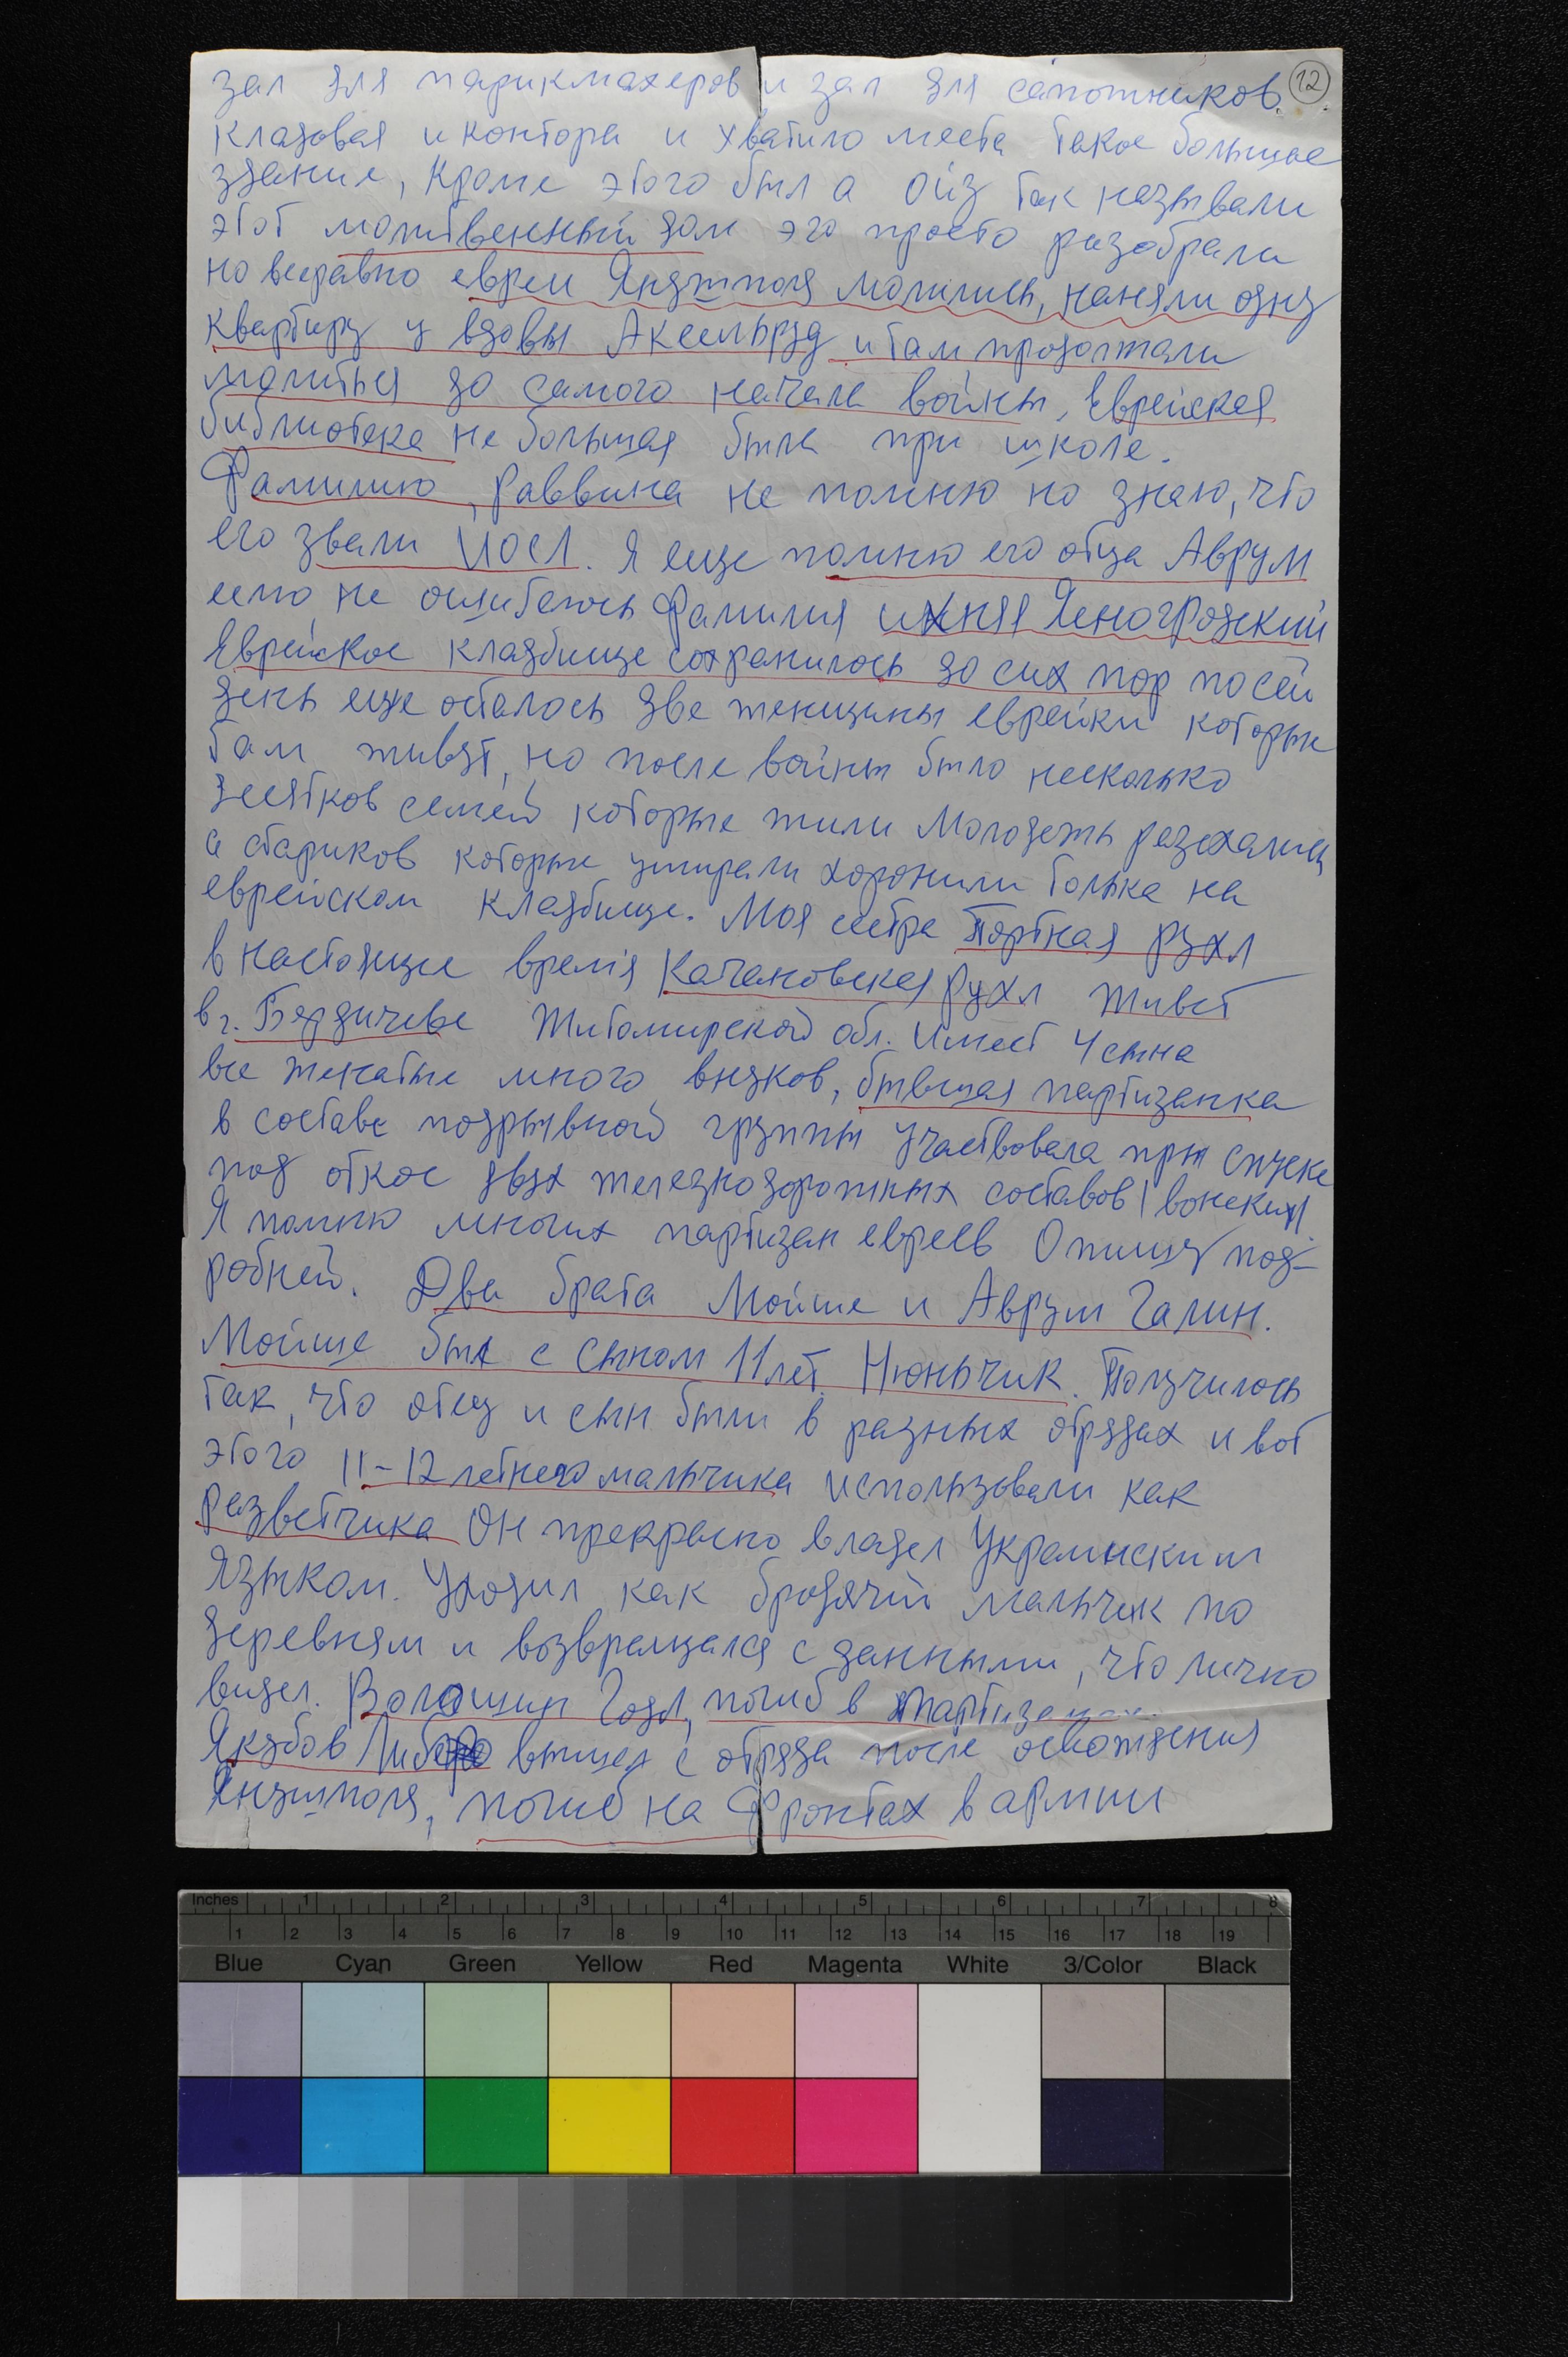 зал для парикмахеров и зал для сапожников. 12
кладовая и контора и хватило места такое большое
здание, Кроме этого был а ойз так называли
этот молитвенный дом эго просто разобрали
но всеравно евреи Янушполя молились, наняли одну
квартиру у вдовы Аксельруд и там продолжали
молиться до самого начала войны, Еврейская
библиотека не большая была при школе.
Фамилию, раввина не помню но знаю, что
его звали Иосл. Я еще помню его отца Аврум
если не ошибаюсь фамилия ихняя Ясногродский
Еврейское кладбище сохранилось до сих пор по сей
день еще осталось две женщины еврейки которые
там живут, но после войны было несколько
десятков семей которые жили Молодежь разехались
а стариков которые умирали хоронили только на
еврейском кладбище. Моя сестра Портная Рухл
в настоящие время Качановская Рухл живет
в г. Бердичеве Житомирской обл. Имеет 4 сына
все женатые много внуков, бывшая партизанка
в составе подрывной группы участвовала при спуске
под откос двух железнодорожных составов (вонских)
Я помню многих партизан евреев Опишу под-
робней. Два брата Мойше и Аврум Галин.
Мойше был с сыном 11 лет. Нюньчик. Получилось
так, что отец и сын были в разных отрядах и вот
этого 11-12 летнего мальчика использовали как
разветчика Он прекрасно владел Украинским
языком. Уходил как бродячий мальчик по
деревням и возвращался с данными, что лично
видел. Волошин Годл, погиб в партизанах.
Якубов вышел с отряда после освождения
Янушполя, погиб на фронтах в армии
Inches 1 2 3 4 5 6 7 8
1 2 3 4 5 6 7 8 9 10 11 12 13 14 15 16 17 18 19
Blue Cyan Green Yellow Red Magenta White 3/Color Black